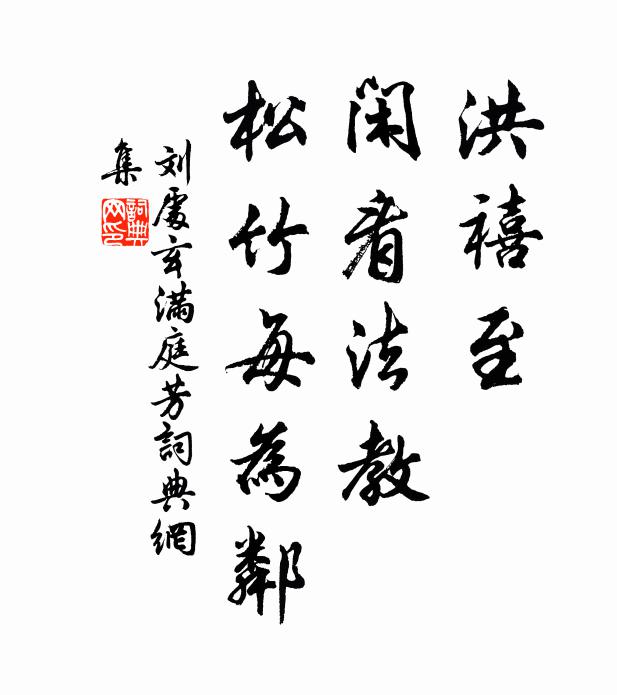 洪禧至
闲看法教
松竹每為鄰
刘處玄满庭芳詞典網
集
詞典
网印